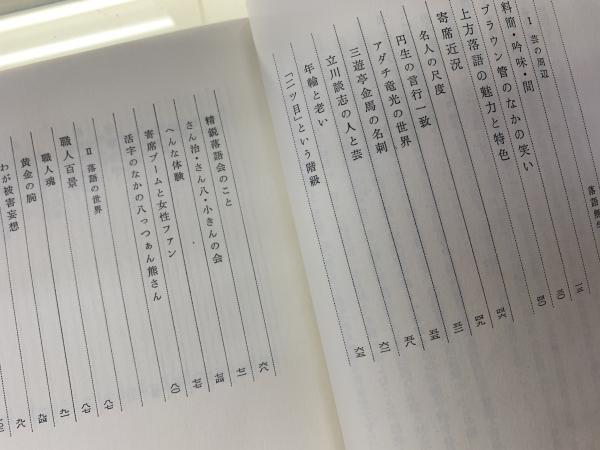 落語無
I 芸の周辺
料簡・吟味・間
ブラウン管のなかの笑い 一三
上方落語の魅力と特色 三〇
寄席近況 四〇
名人の尺度 四六
円生の言行一致 四九
アダチ竜光の世界 五二
三遊亭金馬の名刺 五五
立川談志の人と芸 五八
年輪と老い 六二
「二ツ目」という階級 六五
精鋭落語会のこと 六八
さん治・さん八・小きんの会 七一
へんな体験 七四
寄席ブームと女性ファン 七七
活字のなかの八っつぁん熊さん 八〇
II 落語の世界 八七
職人百景 八七
職人魂 九一
黄金の腕 九四
わが被害妄想 九八